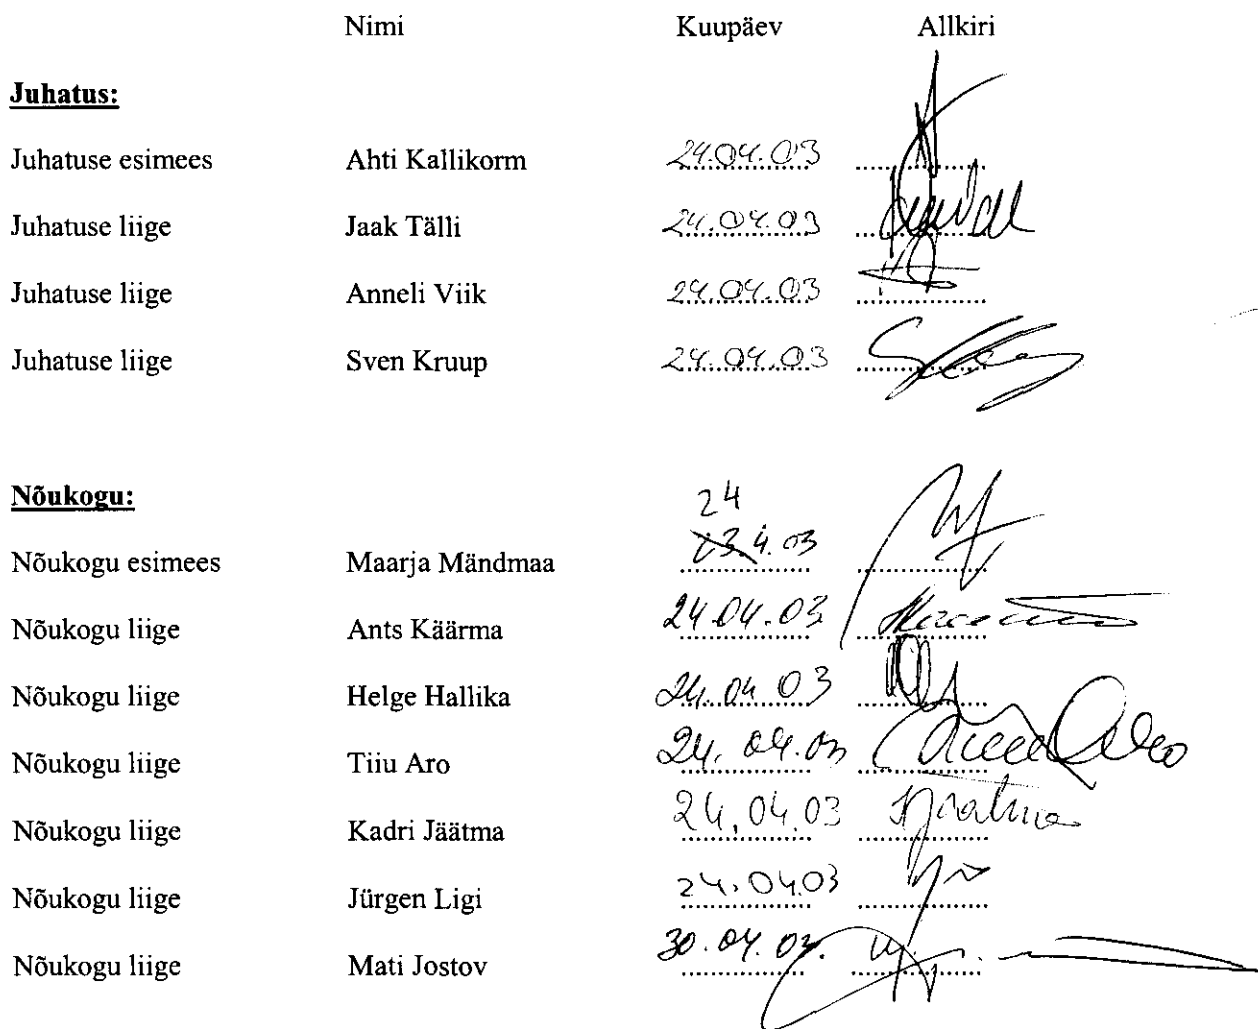 Nimi Kuupäev Allkiri
Juhatus:
Juhatuse esimees Ahti Kallikorm 24.04.03
Juhatuse liige Jaak Tälli 24.04.03
Juhatuse liige Anneli Viik 24.04.03
Juhatuse liige Sven Kruup 24.04.03
Nõukogu:
24
Nõukogu esimees Maarja Mändmaa 23.4.03
Nõukogu liige Ants Käärma 24.04.03
Nõukogu liige Helge Hallika 24.04.03
Nõukogu liige Tiiu Aro 24.04.03
Nõukogu liige Kadri Jäätma 24.04.03
Nõukogu liige Jürgen Ligi 24.04.03
Nõukogu liige Mati Jostov 30.04.03.